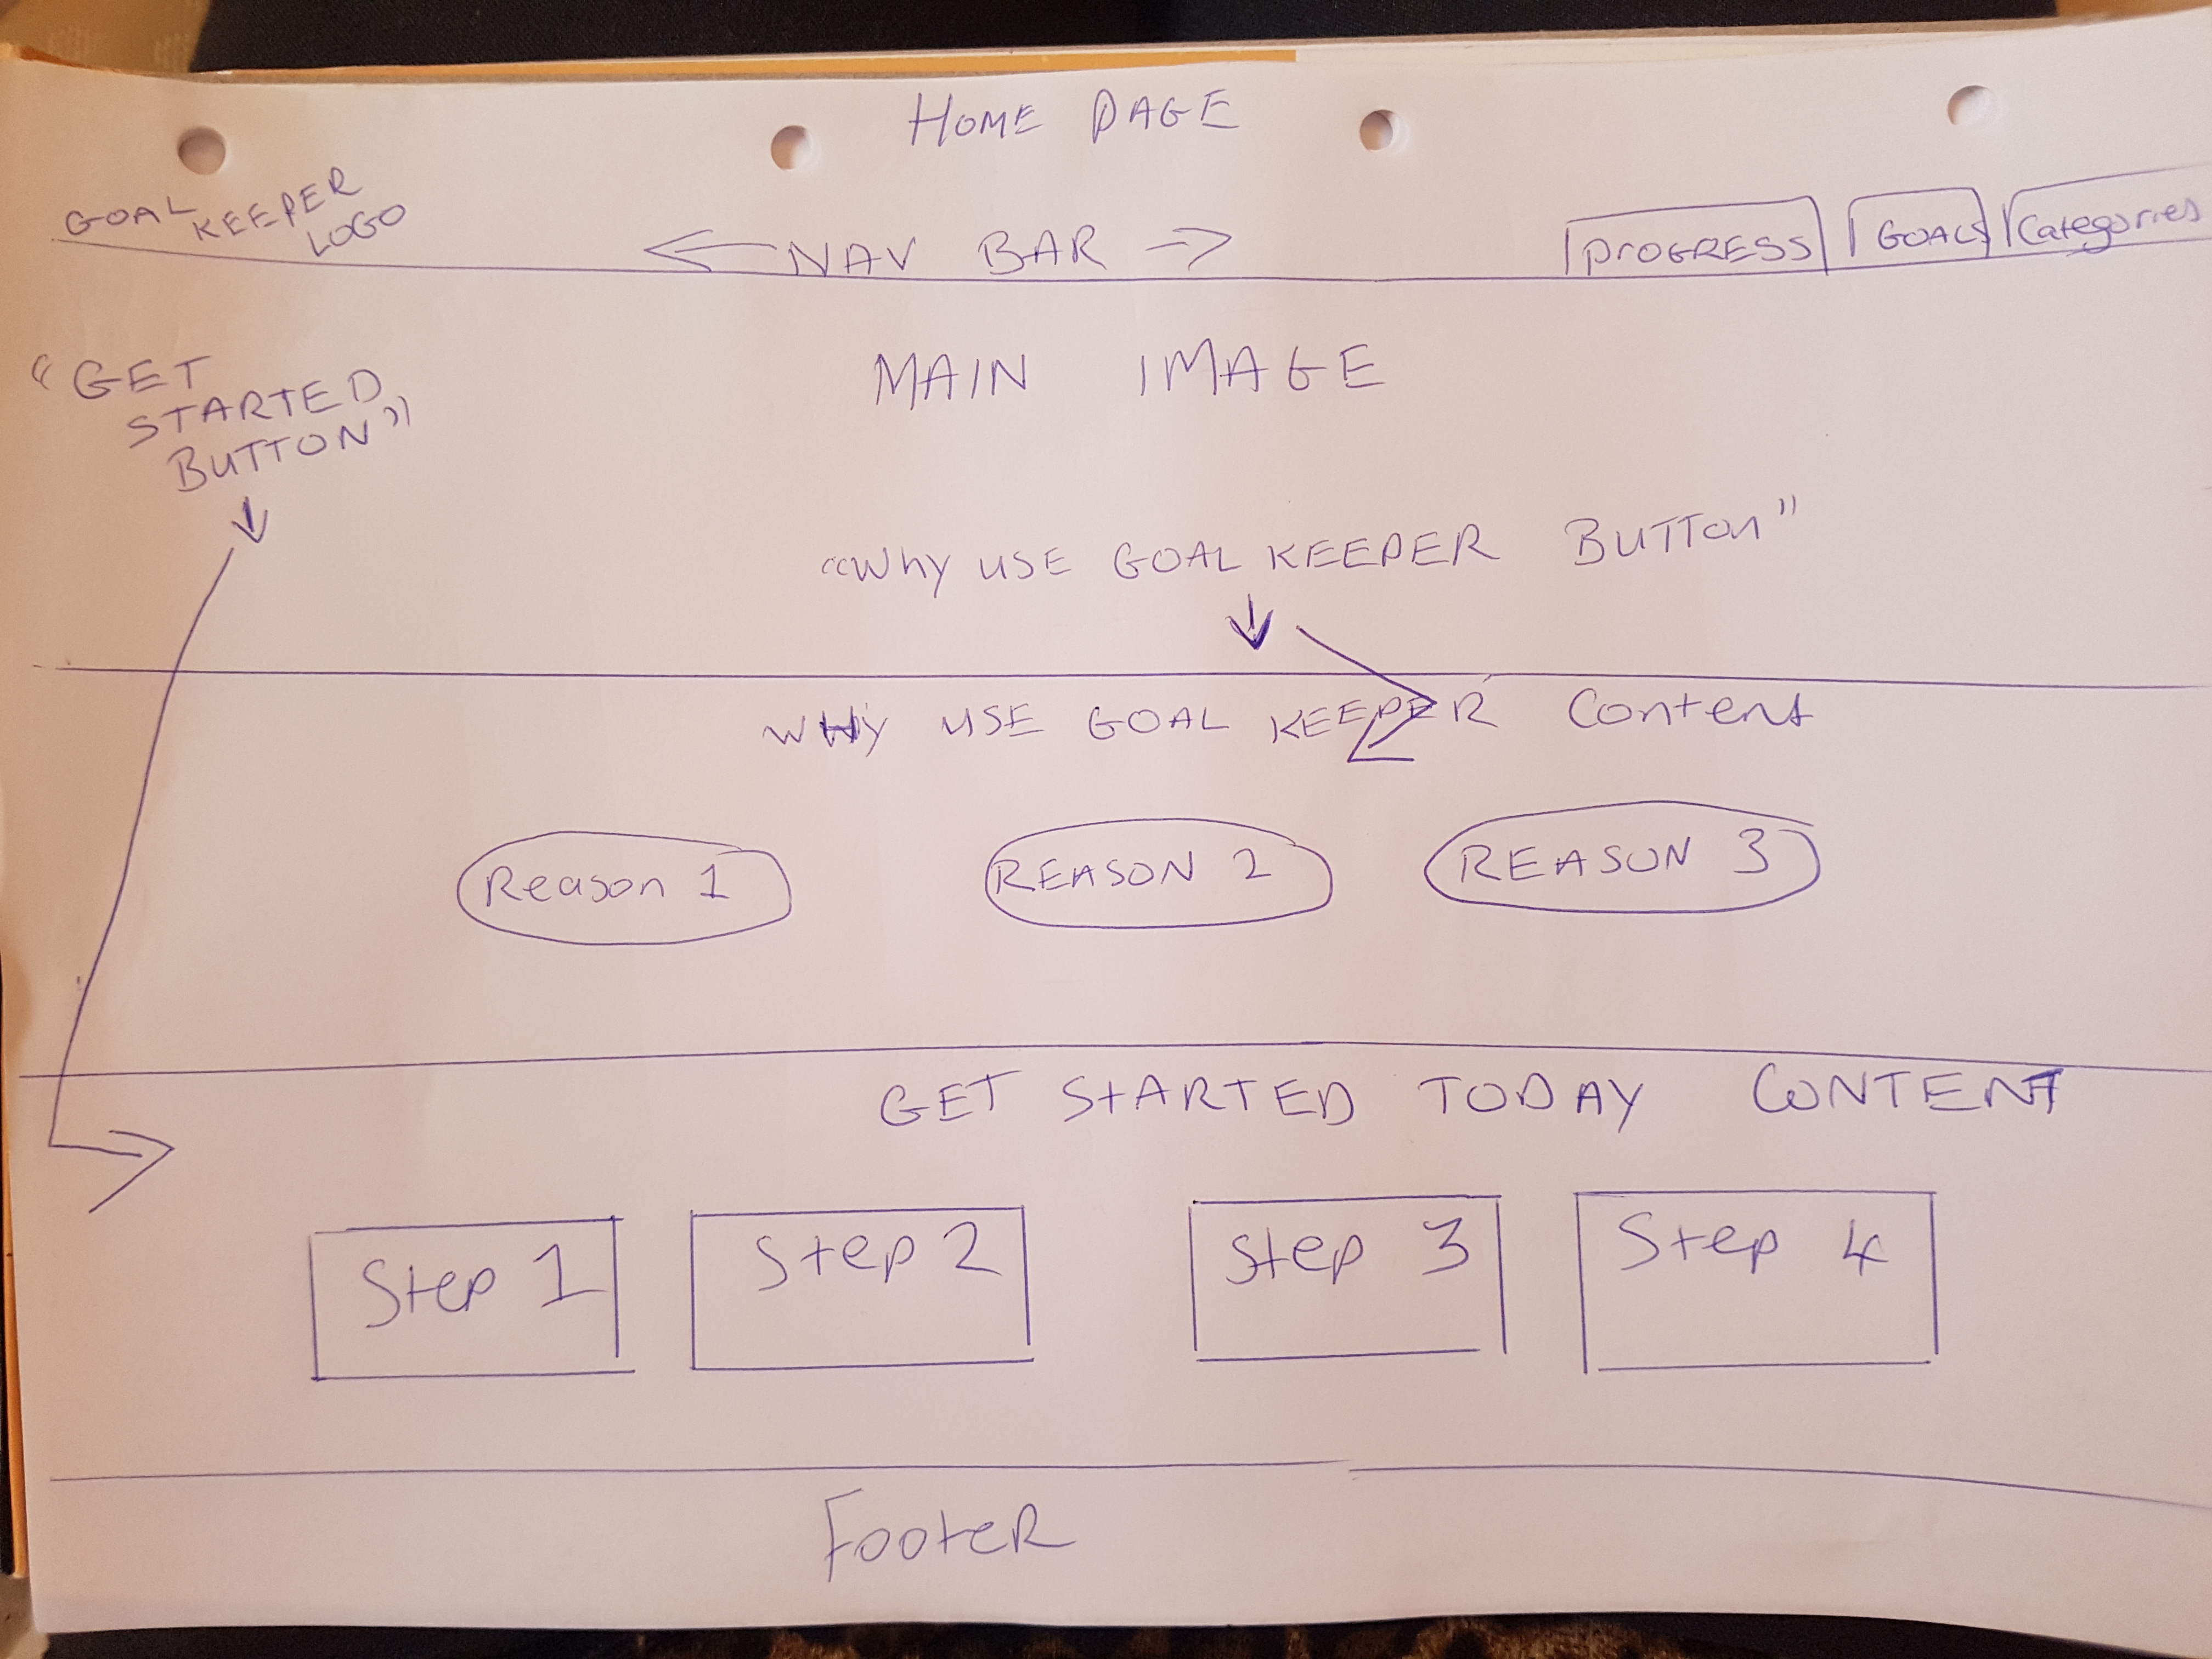 HOME PAGE
GOAL KEEPER
LOGO
<— NAV BAR —>
PROGRESS
GOALS
Categories
"GET
STARTED
BUTTON"
MAIN IMAGE
"Why USE GOAL KEEPER BUTTON"
WHy USE GOAL KEEPER Content
Reason 1
REASON 2
REASON 3
GET STARTED TODAY CONTENT
Step 1
Step 2
Step 3
Step 4
FooteR